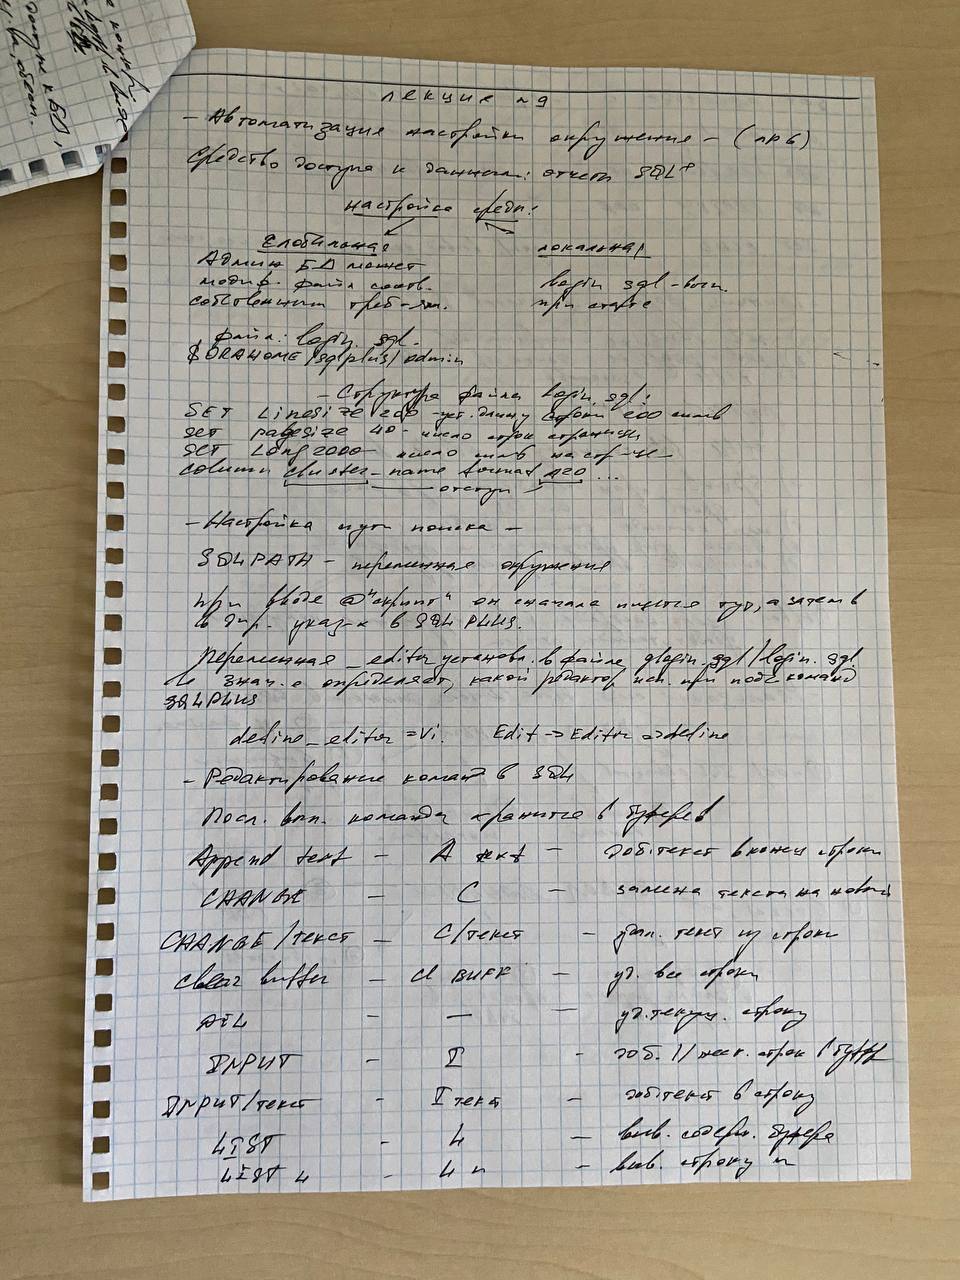 е контр
доступ к БД,
лекция №9
- Автоматизация настройки окружения - (ЛР6)
Средство доступа к данным: отчеты SQL+
Настройка среды:
Глобальная локальная
Админ БД может
модиф. файл соотв. login sql - вып.
собственным треб-ям. при старте
файл: login. sql.
$ORAHOME/sqlplus/admin
- Структура файла login. sql:
SET Linesize 200 - уст. длину строки 200 симв
set pagesize 40 - число строк страницы
SET LONG 2000 - число симв на стр-це
column cluster_name format a20 ...
отступ
- Настройка пути поиска -
SQLPATH - переменная окружения
при вводе @"скрипт" он сначала ищется тут, а затем в
в дир. указ-х в SQL PLUS.
Переменная _editor установ. в файле glogin.sql/login.sql
и знач. е определяет, какой редактор исп. при под команд
SQLPLUS
define_editor = Vi. Edit -> Editor => define
- Редактирование команд в SQL
Посл. вып. команда хранится в буфере
Append text - A text - доб. текст в конец строки
CHANGE - C - замена текста на новый
CHANGE/текст - C/текст - удал. текст из строки
Clear buffer - Cl BUFF - уд. все строки
DEL - — - уд. текущ. строку
INPUT - I - доб. 1/неск. строк в буфер
INPUT/текст - I текст - доб. текст в строку
LIST - L - выв. содерж. буфера
LIST n - L n - выв. строку n